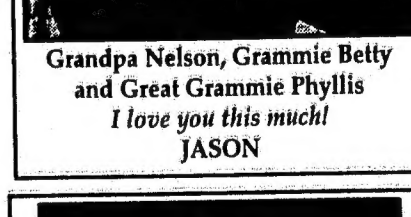 Grandpa Nelson, Grammie Betty
and Great Grammie Phyllis
I love you this much!
JASON